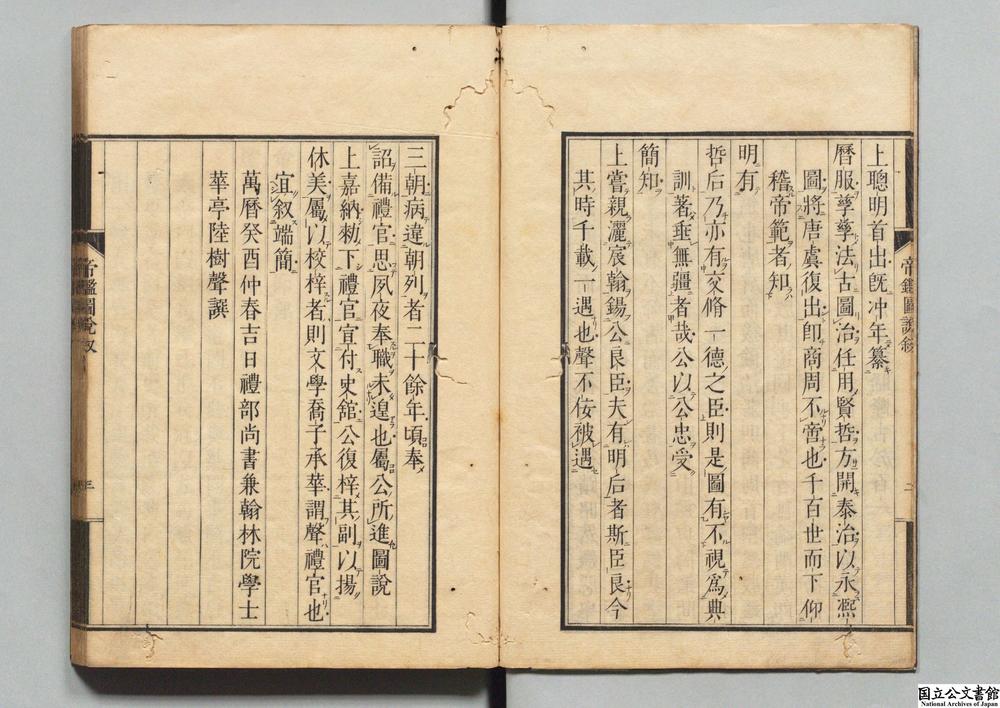 上聰明首出旣冲年纂
曆服孳孳法古圖治任用賢哲方開泰治以永熈
圖將唐虞復出卽商周不啻也千百世而下仰
稽帝範者知
明有
哲后乃亦有交脩一德之臣則是圖有不視爲典
訓著垂無疆者哉公以公忠受
簡知
上嘗親灑宸翰鍚公良臣夫有明后者斯臣良今
其時千載一遇也聲不佞被遇
帝鑑圖說叙
二
三朝病違朝列者二十餘年頃奉
詔備禮官思夙夜奉職未遑也屬公所進圖說
上嘉納勑下禮官宣付史舘公復梓其副以揚
休美屬以校梓者則文學喬子承華謂聲禮官也
宜叙端簡
萬曆癸酉仲春吉日禮部尚書兼翰林院學士
華亭陸樹聲譔
帝鑑圖說叙
三
国立公文書館
National Archives of Japan